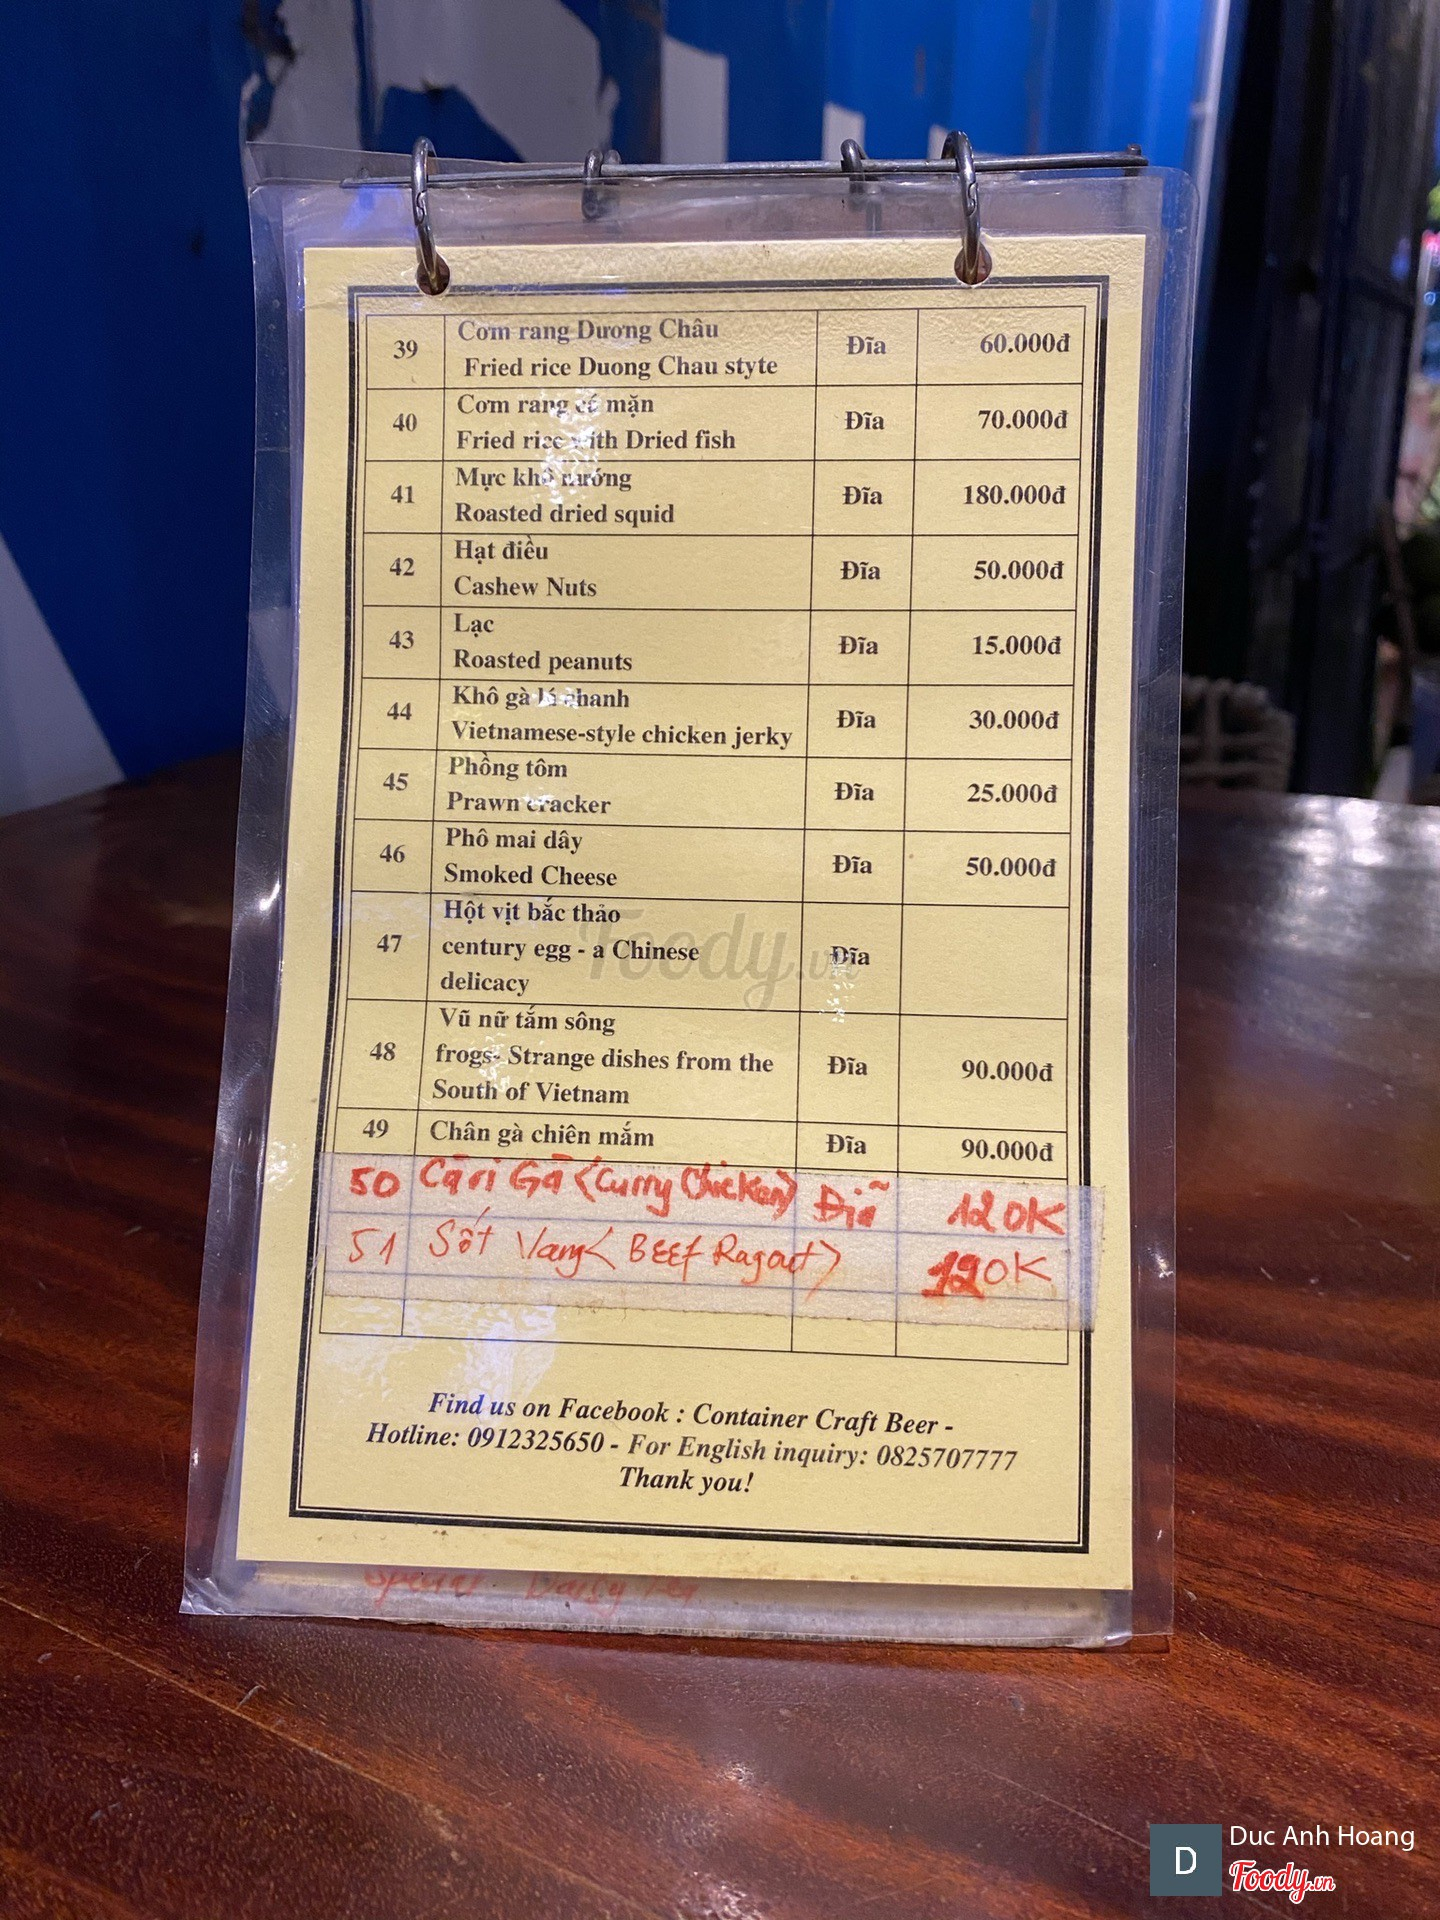 39
Cơm rang Dương Châu
Fried rice Duong Chau styte
Đĩa
60.000đ
40
Cơm rang cá mặn
Fried rice with Dried fish
Đĩa
70.000đ
41
Mực khô nướng
Roasted dried squid
Đĩa
180.000đ
42
Hạt điều
Cashew Nuts
Đĩa
50.000đ
43
Lạc
Roasted peanuts
Đĩa
15.000đ
44
Khô gà lá chanh
Vietnamese-style chicken jerky
Đĩa
30.000đ
45
Phồng tôm
Prawn cracker
Đĩa
25.000đ
46
Phô mai dây
Smoked Cheese
Đĩa
50.000đ
47
Hột vịt bắc thảo
century egg - a Chinese
delicacy
Đĩa
48
Vũ nữ tắm sông
frogs- Strange dishes from the
South of Vietnam
Đĩa
90.000đ
49
Chân gà chiên mắm
Đĩa
90.000đ
50 Cà ri Gà (Curry Chicken) Đĩa 120K
51 Sốt Vang (BEEf Ragout) 120K
Find us on Facebook : Container Craft Beer -
Hotline: 0912325650 - For English inquiry: 0825707777
Thank you!
Foody.vn
D
Duc Anh Hoang
Foody.vn